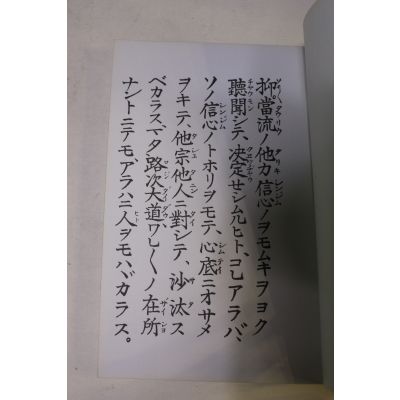 抑當流ノ他力信心ノヲモムキヲヨク
聽聞シテ、決定セシムルヒト、コレアラバ、
ソノ信心ノトホリヲモテ、心底ニオサメ
ヲキテ、他宗他人ニ對シテ、沙汰ス
ベカラス。マタ路次大道、ワレ〱ノ在所
ナントニテモ、アラハニ人ヲモハバカラス。